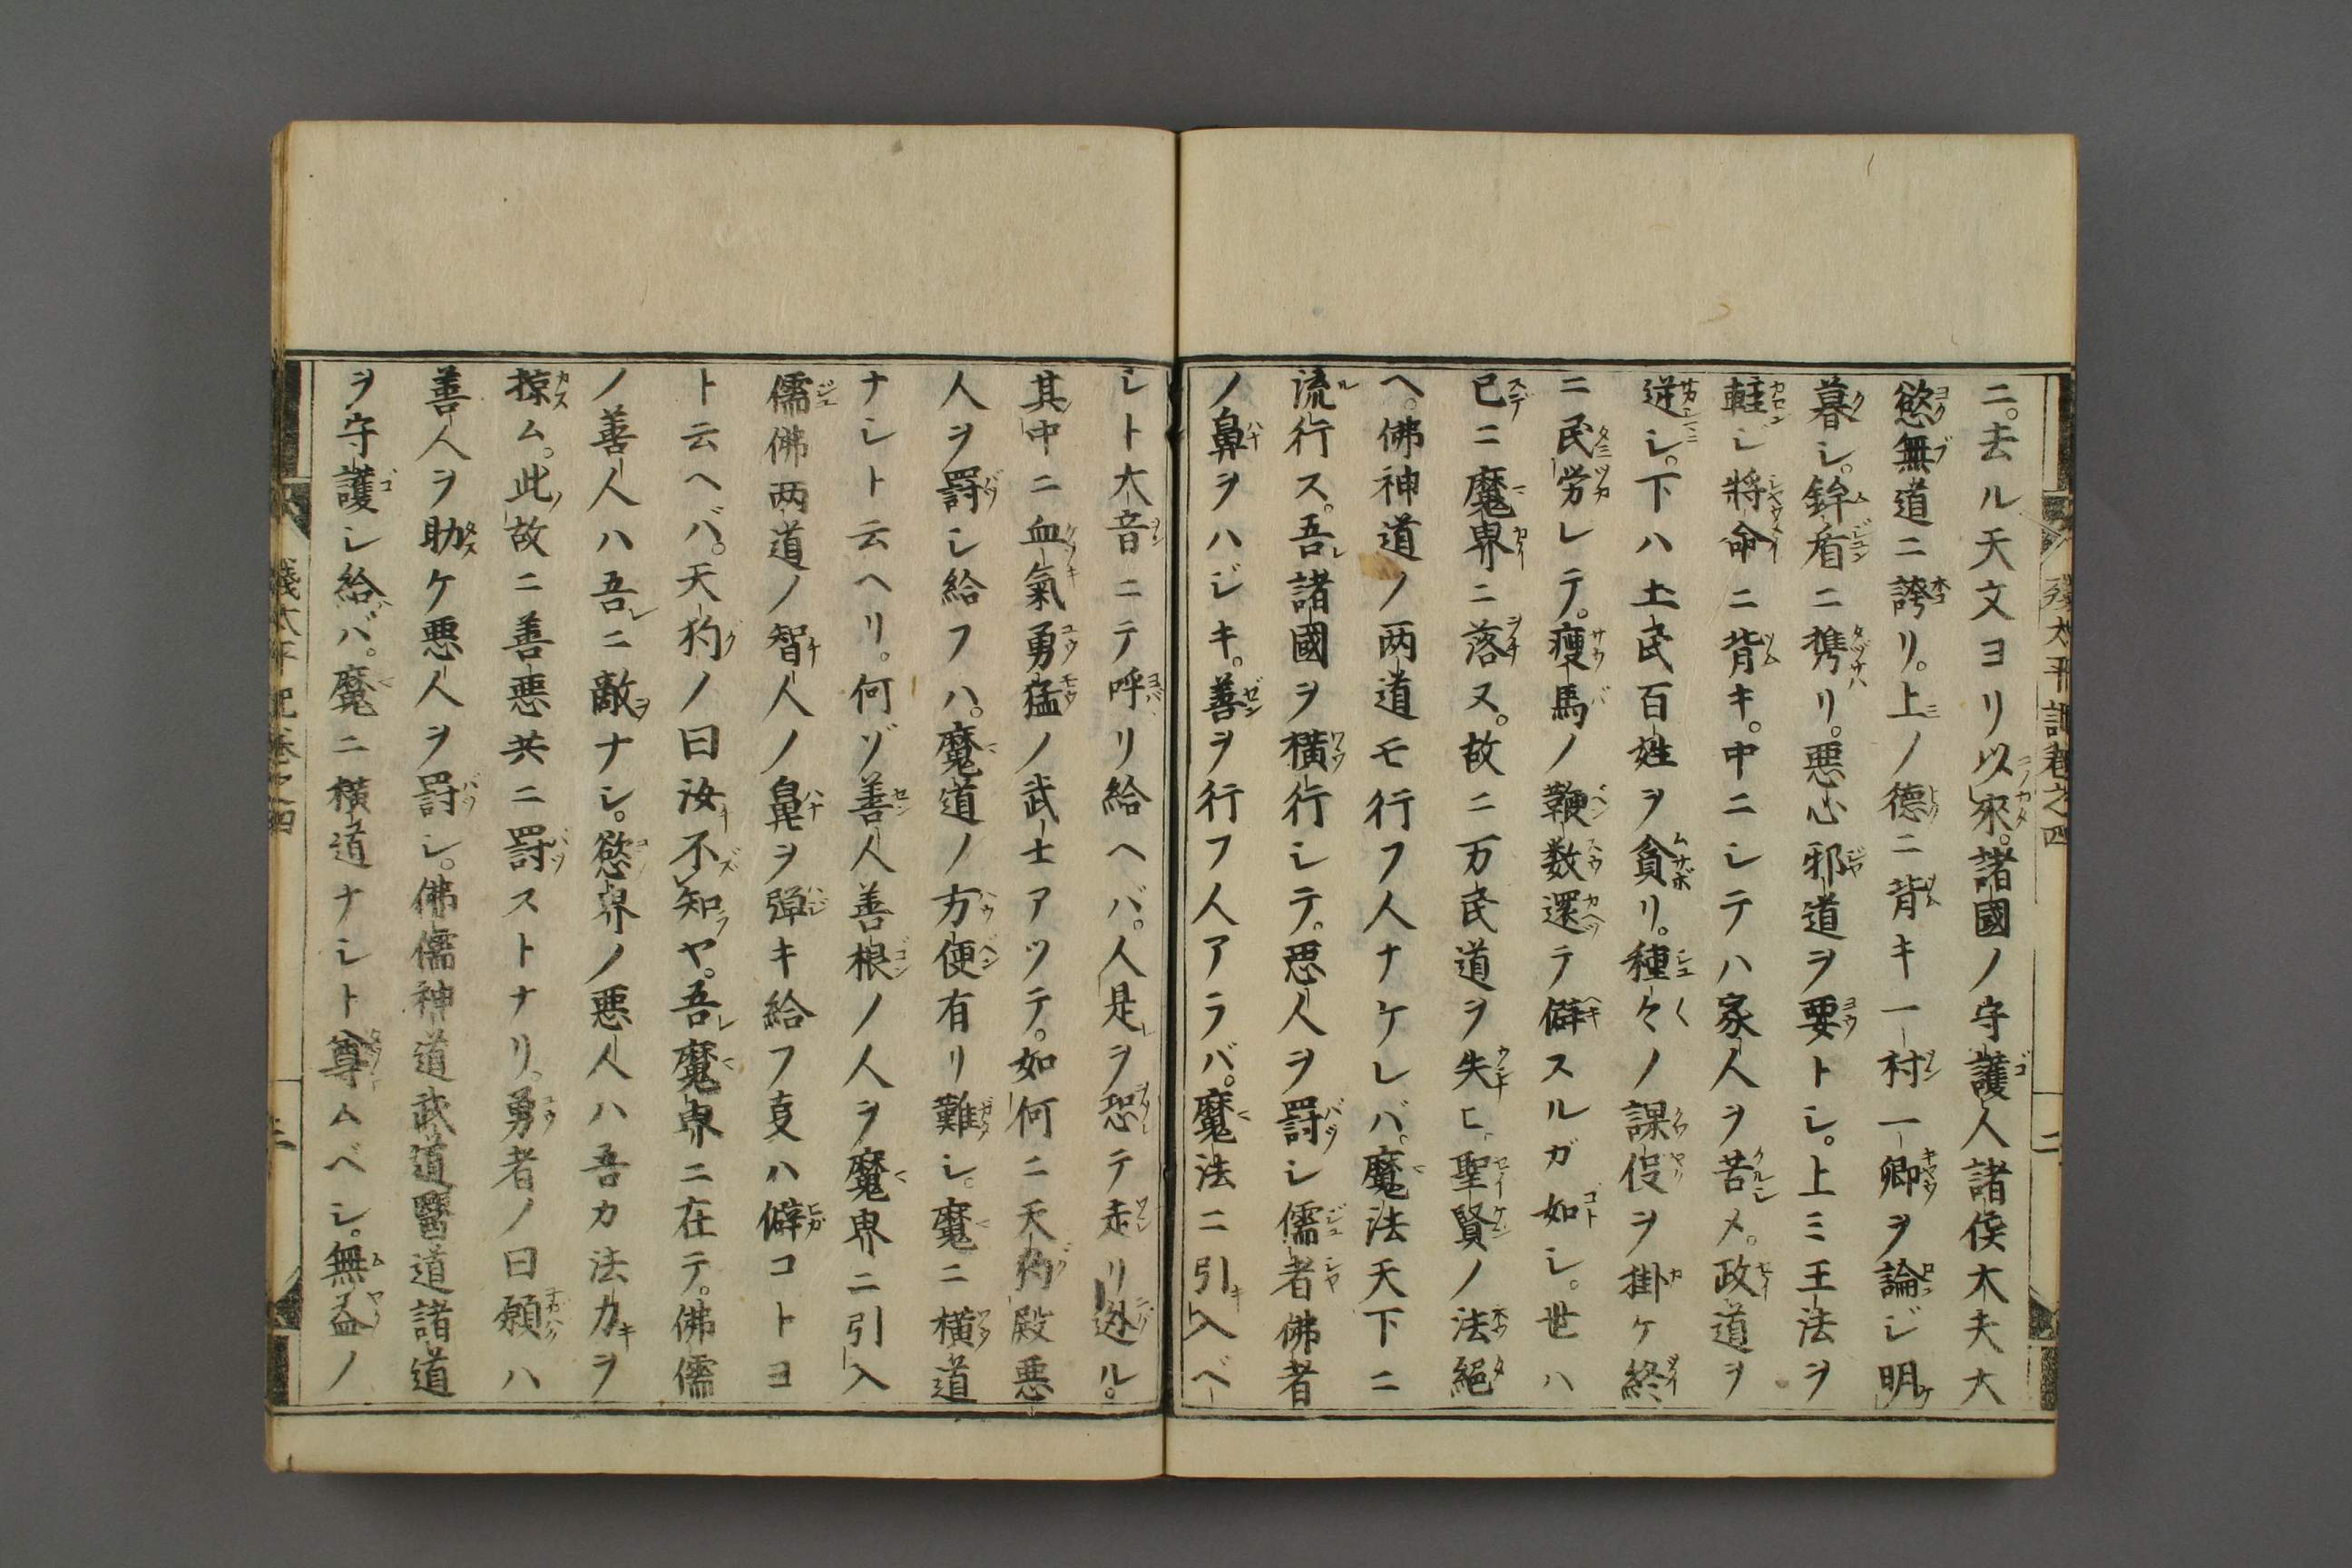 残太平記巻之四
二
ニ。去ル天文ヨリ以来。諸國ノ守護人諸侯大夫大
慾無道ニ誇リ。上ノ德ニ背キ一村一郷ヲ論ジ明
暮シ。鉾盾ニ携リ。悪心邪道ヲ要トシ。上ミ王法ヲ
軽シ將命ニ背キ。中ニシテハ家人ヲ苦メ。政道ヲ
逆シ。下ハ土民百姓ヲ貪リ。種々ノ課役ヲ掛ケ終
ニ民労レテ。瘦馬ノ鞭数還テ僻スルガ如シ。世ハ
已ニ魔界ニ落ヌ。故ニ万民道ヲ失ヒ聖賢ノ法絕
ヘ。佛神道ノ两道モ行フ人ナケレバ。魔法天下ニ
流行ス。吾諸國ヲ横行シテ。悪人ヲ罸シ儒者佛者
ノ鼻ヲハジキ。善ヲ行フ人アラバ。魔法ニ引入ベ
シト大音ニテ呼リ給ヘバ。人是ヲ恐テ走リ迯ル。
其中ニ血氣勇猛ノ武士アツテ。如何ニ天狗殿悪
人ヲ罸シ給フハ。魔道ノ方便有リ難シ。魔ニ横道
ナシト云ヘリ。何ゾ善人善根ノ人ヲ魔界ニ引入
儒佛两道ノ智人ノ鼻ヲ弾キ給フ叓ハ僻コトヨ
ト云ヘバ。天狗ノ曰汝不知ヤ。吾魔界ニ在テ。佛儒
ノ善人ハ吾ニ敵ナシ。慾界ノ悪人ハ吾カ法力ヲ
掠ム。此故ニ善悪共ニ罸ストナリ。勇者ノ曰願ハ
善人ヲ助ケ悪人ヲ罸シ。佛儒神道武道醫道諸道
ヲ守護シ給バ。魔ニ横道ナシト尊ムベシ。無益ノ
残太平記巻之四